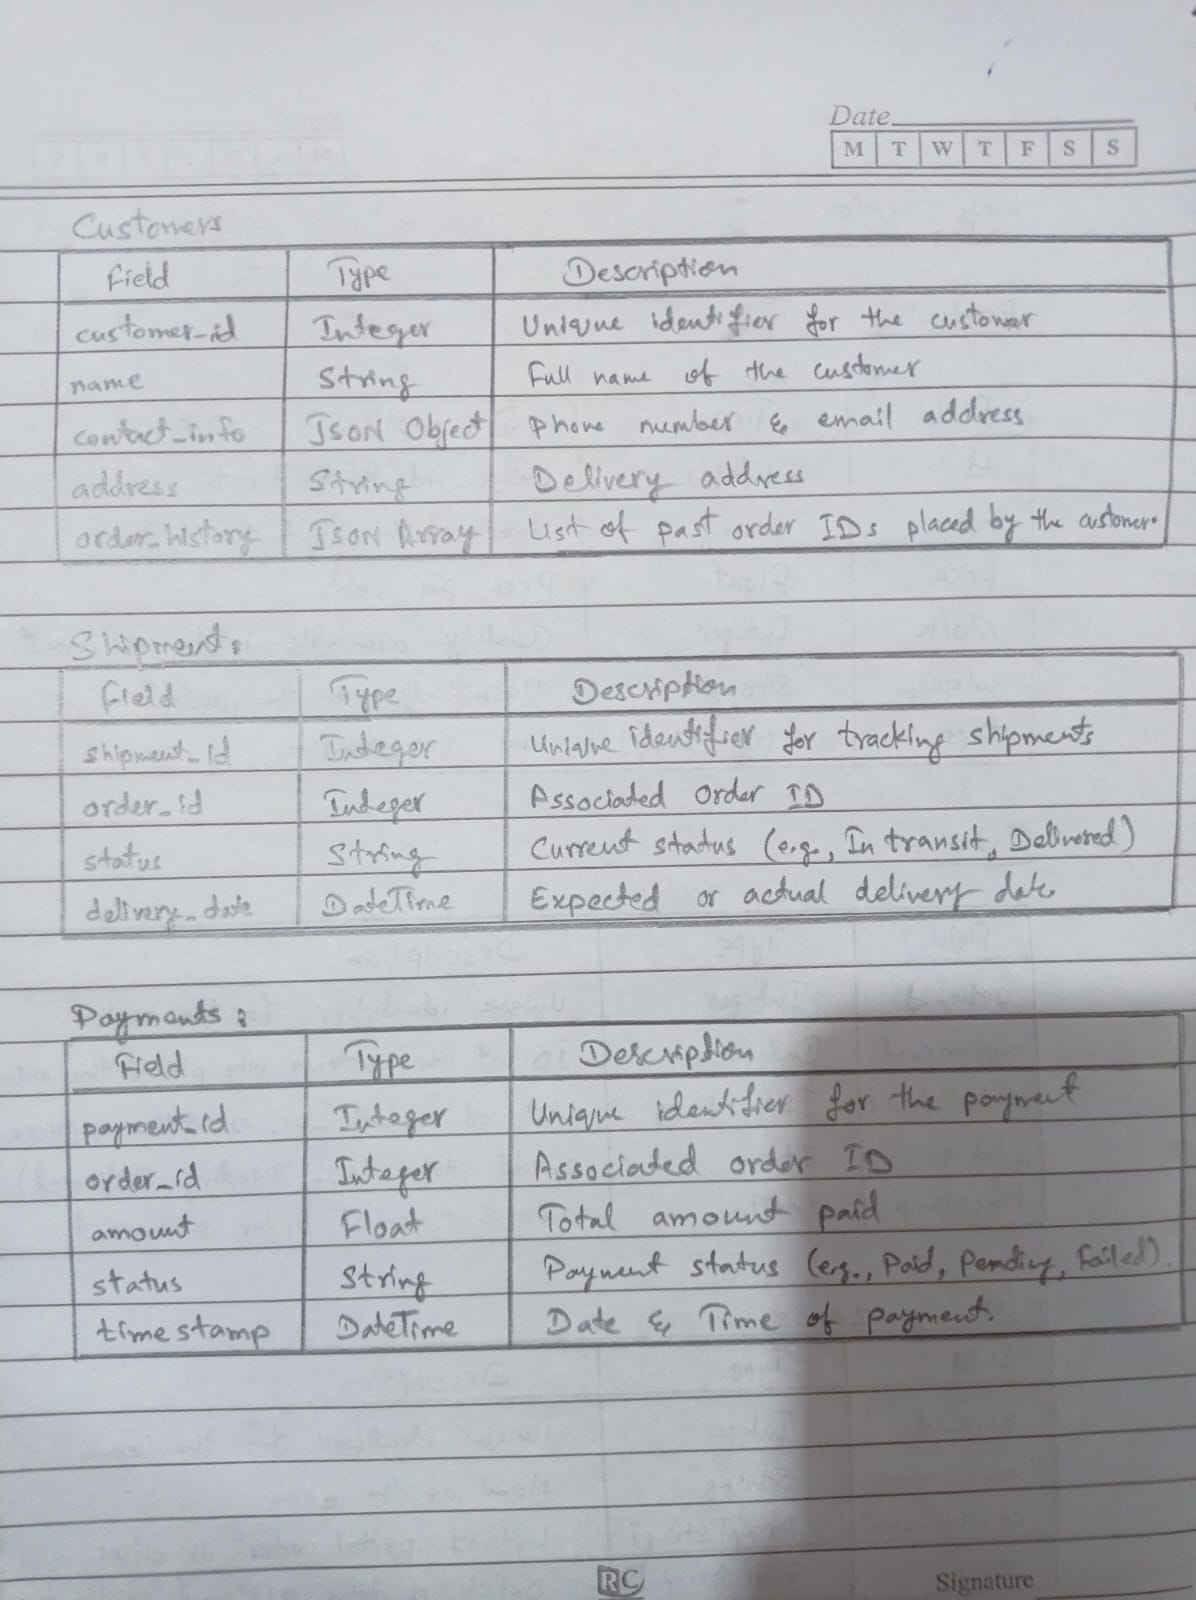 Date
M T W T F S S
Customers
Field Type Description
customer_id Integer Unique identifier for the customer
name String Full name of the customer
contact_info JSON Object Phone number & email address
address String Delivery address
order_history JSON Array List of past order IDs placed by the customer.
Shipment:
Field Type Description
shipment_id Integer Unique identifier for tracking shipments
order_id Integer Associated Order ID
status String Current status (e.g., In transit, Delivered)
delivery_date DateTime Expected or actual delivery date
Payments:
Field Type Description
payment_id Integer Unique identifier for the payment
order_id Integer Associated order ID
amount Float Total amount paid
status String Payment status (e.g., Paid, Pending, Failed).
timestamp DateTime Date & Time of payment.
RC Signature